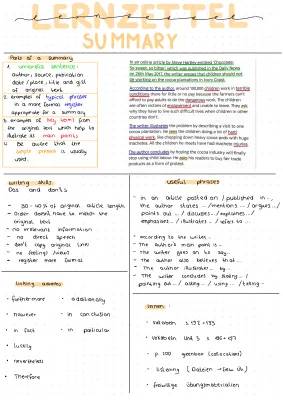 LERNZETTEL
SUMMARY
Parts of a summary
1. umbrella sentence:
author, source, publication
date / place, title and gist
of original work.
2. examples of typical phrases
in a more formal register
appropriate for a summary
3. examples of key words from
the original text which help to
illustrate the main points
4. Be aware that the
simple present is usually
used.
In an online article by Steve Hartley entitled 'Chocolate:
So sweet, so bitter' which was published in the Daily News
on 26th May 2017, the writer argues that children should not
be working on the cocoa plantations in Ivory Coast.
According to the author, around 100,000 children work in terrible
conditions there for little or no pay because the farmers can't
afford to pay adults to do the dangerous work. The children
are often victims of enslavement and unable to leave. They ask
why they have to live such difficult lives when children in other
countries don't.
The writer illustrates the problem by describing a visit to one
cocoa plantation. He sees the children doing a lot of hard
physical work, like chopping down heavy cocoa pods with huge
machetes. All the children he meets have had machete injuries.
The author concludes by hoping the cocoa industry will finally
stop using child labour. He asks his readers to buy fair trade
products as a form of protest.
writing skills:
Dos and don'ts
- 30-40% of original article length
- order doesn't have to match the
original text
- no irrelevant information
- no direct speech
- don't copy original lines
- no feeling / views
- register more formal
useful phrases
- in an article posted on / published in...
the author states... / mentions... / argues... /
points out... / discusses... / explains... /
emphasises... / illustrates... / refers to...
- according to the writer...
- The author's main point is...
- The writer goes on to say...
- The author also believes that...
- The author illustrates... by...
- The writer concludes by saying... /
pointing out... / asking... / using... / telling...
linking words:
• furthermore
• additionally
• however
• in conclusion
• in fact
• in particular
• luckily
• nevertheless
• Therefore
lernen:
- Vokabeln
- Vokabeln Unit 3
- p. 100
- listening (Dateien → New Us)
- freiwillige Übungsmaterialien